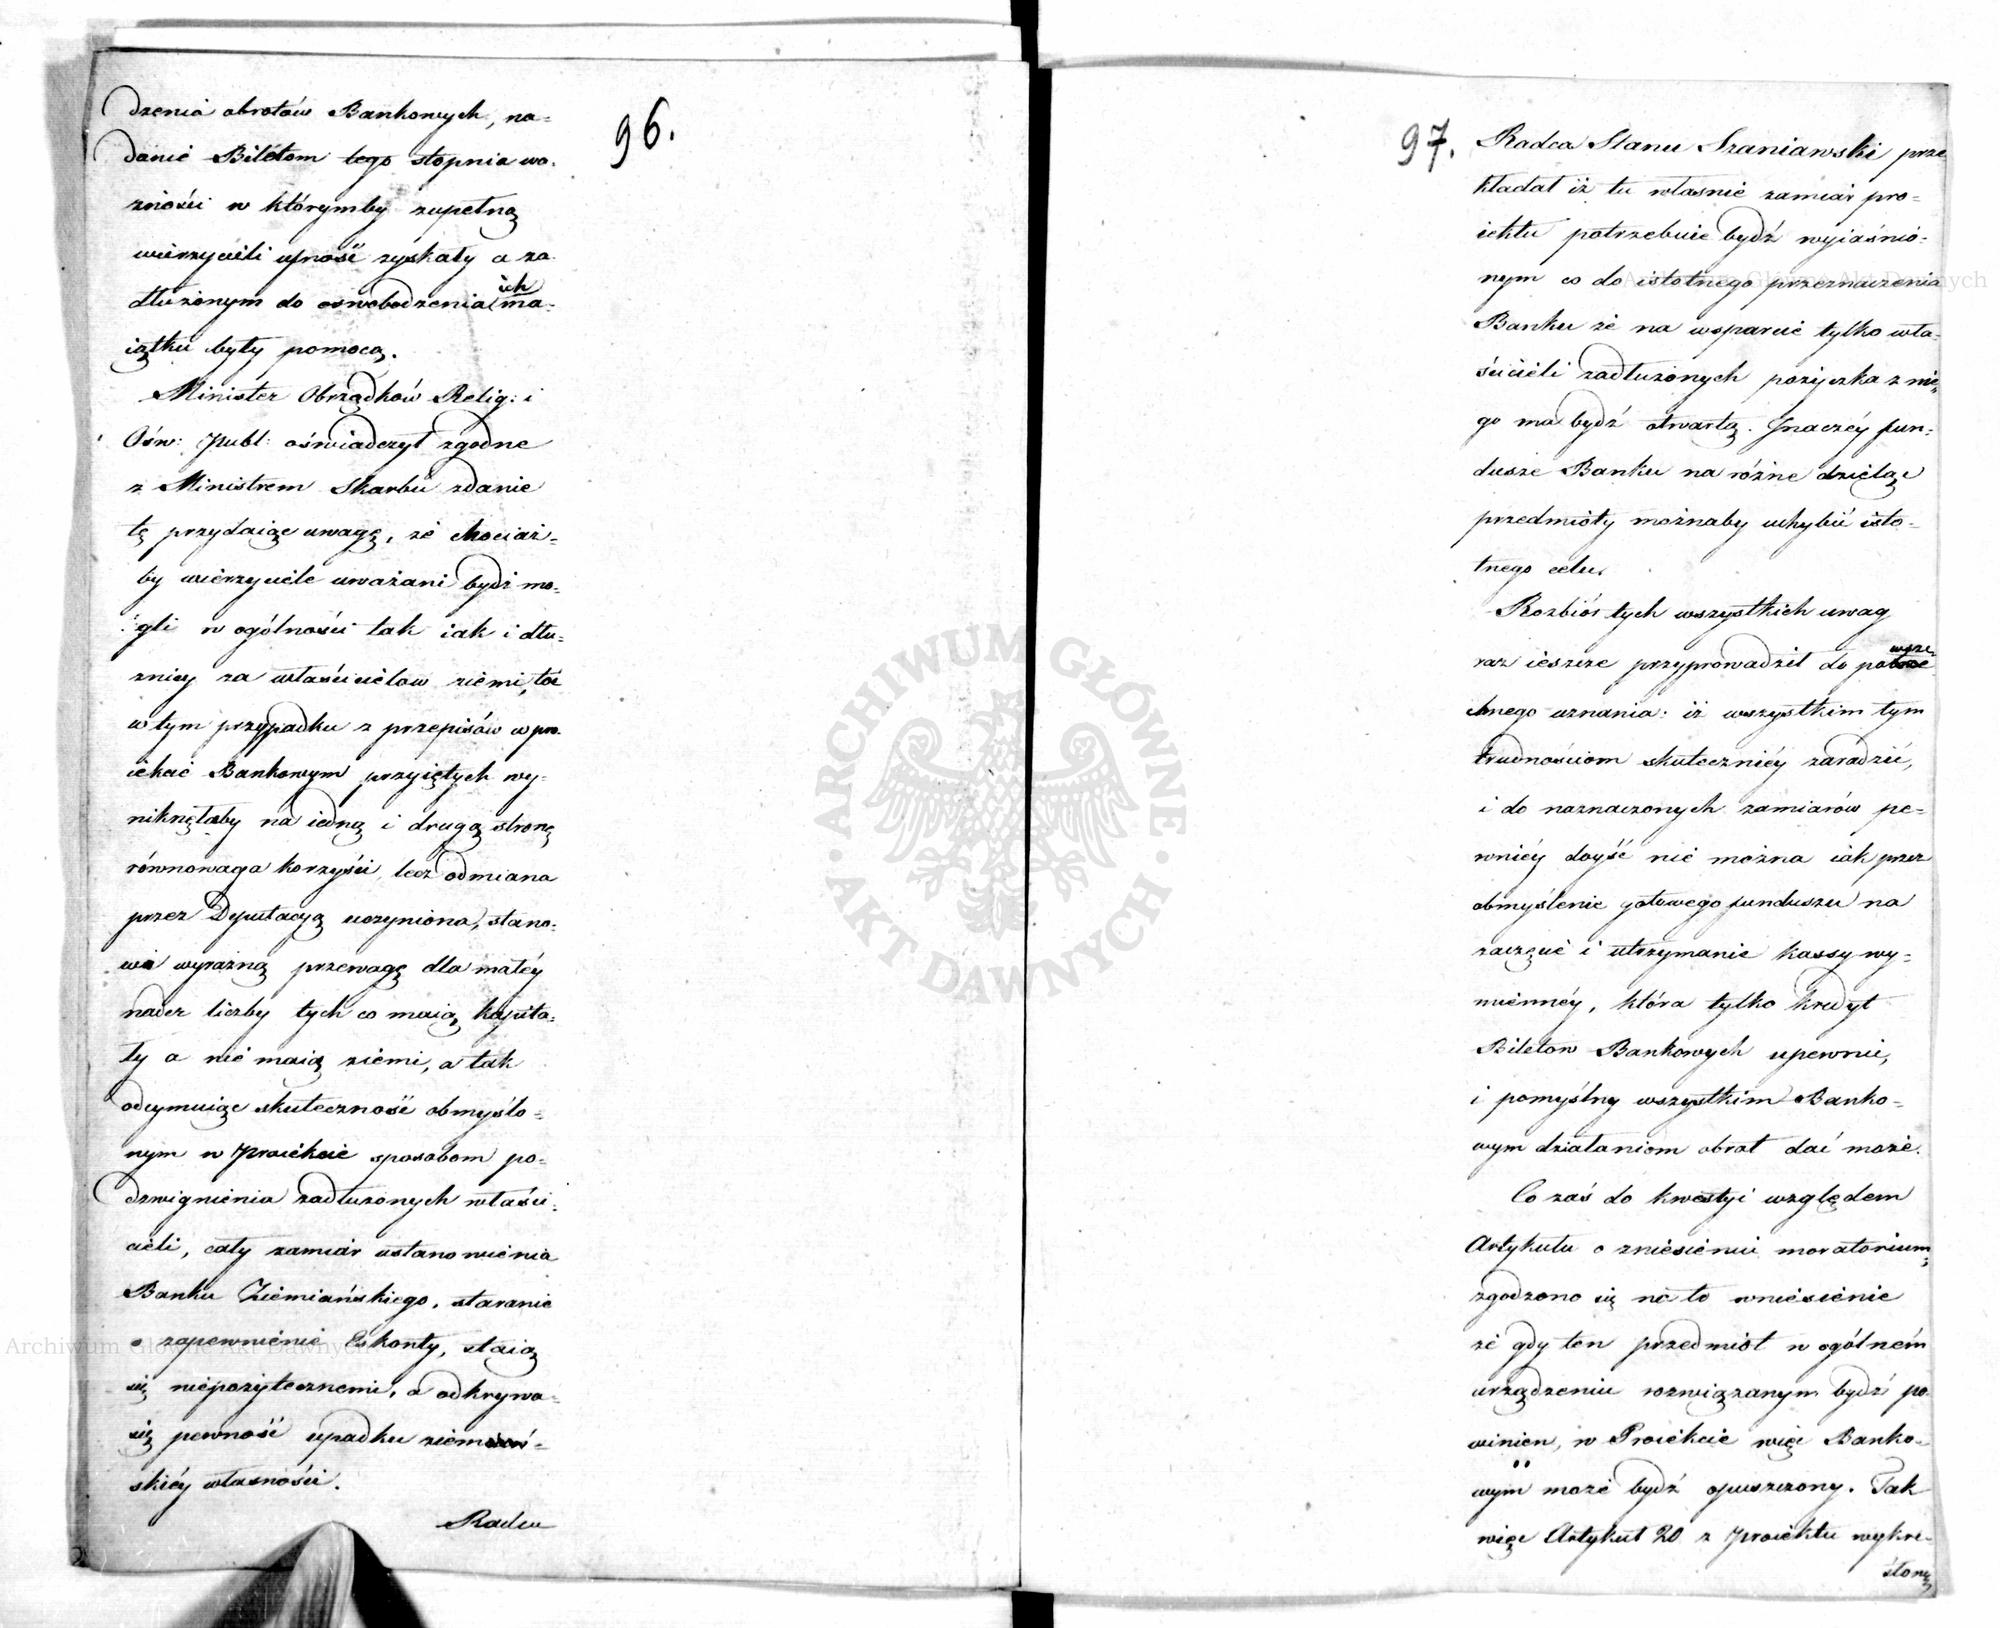 96.
dzenia obrotów Bankowych, na=
danie Biletom tego stopnia wa=
żności w którymby zupełną
wierzycieli ufność zyskały a za
dłużonym do oswobodzenia ich ma=
iątku były pomocą.
Minister Obrządków Relig: i
Ośw: Publ: oświadczył zgodne
z Ministrem Skarbu zdanie
tę przydaiąc uwagę, że chociaż=
by wierzyciele uważani bydź mo=
gli w ogólności tak iak i dłu=
żnicy za właścicielow ziemi, toć
w tym przypadku z przepisów w pro
iekcie Bankowym przyiętych wy=
niknęłaby na iedną i drugą stronę
równowaga korzyści, lecz odmiana
przez Deputacyą uczyniona, stano=
wi wyraźną przewagę dla małéy
nader liczby tych co maią kapita=
ły a nie maią ziemi, a tak
odeymuiąc skuteczność obmyślo=
nym w Proiekcie sposobom po=
dzwignienia zadłużonych właści=
cieli, cały zamiar ustanowienia
Banku Ziemiańskiego, staranie
o zapewnienie Eskonty, staią
się niepożytecznemi, a odkrywa=
się pewność upadku ziemiań=
skiéy własności.
Radca
97.
Radca Stanu Szaniawski prze
kładał iż tu własnie zamiar pro=
iektu potrzebuie bydź wyiaśnio=
nym co do istotnego przeznaczenia
Banku że na wsparcie tylko wła=
ścicieli zadłużonych pożyczka z nie=
go ma bydź otwartą. Inaczéy fun=
dusze Banku na różne dzieląc
przedmioty możnaby uchybić isto=
tnego celu.
Rozbiór tych wszystkich uwag
raz ieszcze przyprowadził do powsze
chnego uznania: iż wszystkim tym
trudnościom skuteczniéy zaradzić,
i do naznaczonych zamiarów pe=
wniéy doyść nie można iak przez
obmyślenie gotowego funduszu na
zaczęcie i utrzymanie kassy wy=
miennéy, która tylko kredyt
Biletow Bankowych upewni,
i pomyślny wszystkim Banko=
wym działaniom obrot dać może.
Co zaś do kwestyi względem
Artykułu o zniesieniu moratorium;
zgodzono się na to wniesienie
że gdy ten przedmiot w ogólném
urządzeniu rozwiązanym bydź po
winien, w Proiekcie więc Banko=
wym może bydź opuszczony. Tak
więc Artykuł 20 z Proiektu wykre=
ślony
ARCHIWUM GŁÓWNE AKT DAWNYCH
Archiwum Główne Akt Dawnych
Archiwum Główne Akt Dawnych